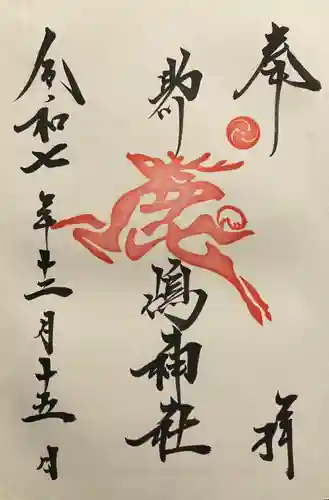 奉拝
助川鹿嶋神社
令和七年十二月十五日